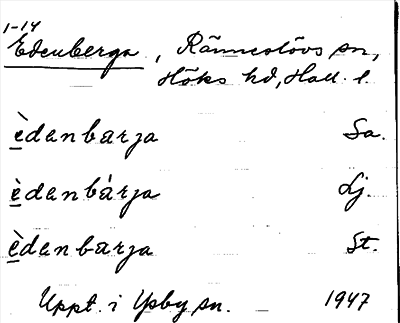 1-14
Edenberga, Ränneslövs sn,
Höks hd, Hall. l.
èdanbarja Sa.
èdanbàrja Lj.
èdanbarja St.
Uppt. i Ysby sn. 1947